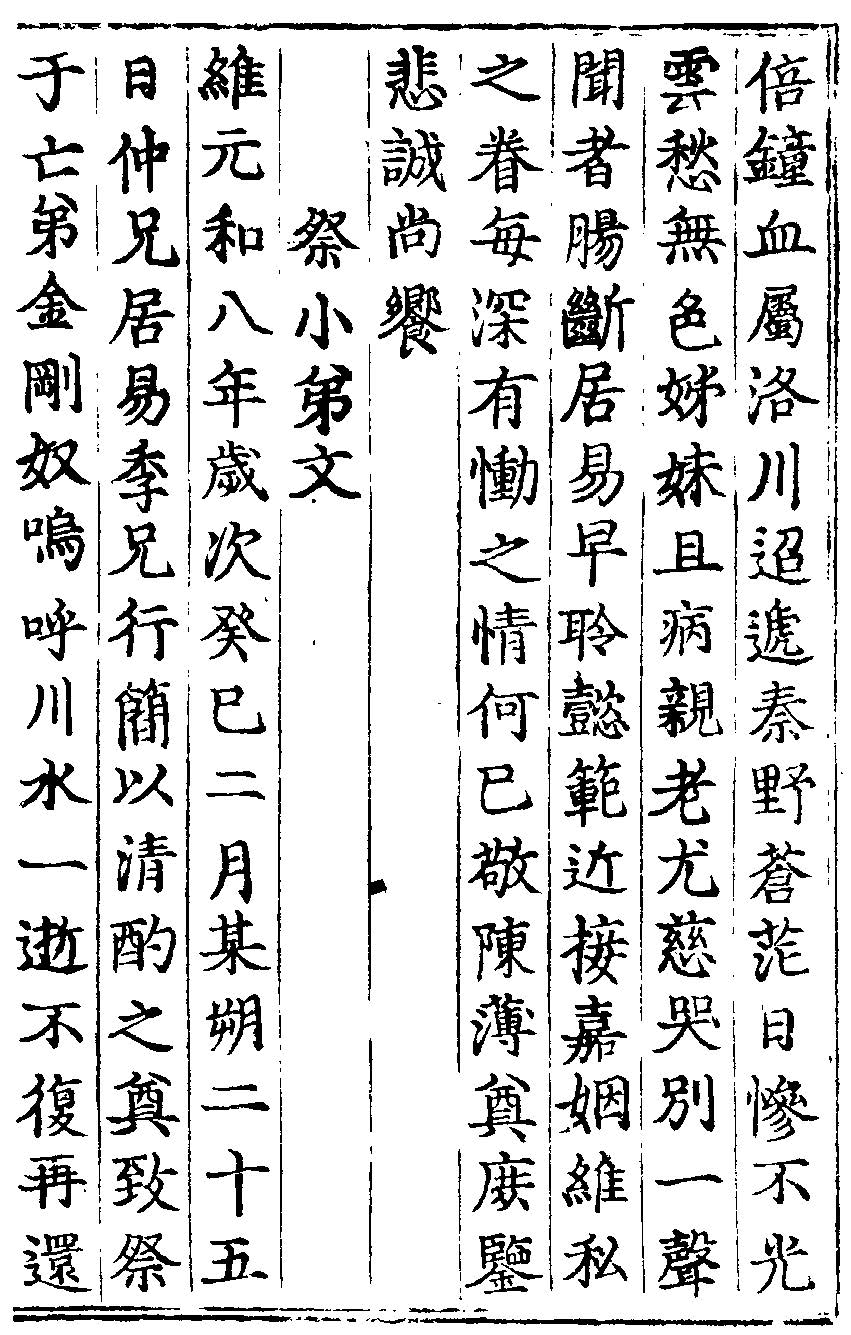 倍鐘血屬洛川迢遞秦野蒼茫日慘不光
雲愁無色姊妹且病親老尤慈哭別一聲
聞者腸斷居易早聆懿範近接嘉姻維私
之眷每深有慟之情何已敬陳薄奠庶鑒
悲誠尚饗
祭小弟文
維元和八年歲次癸巳二月某朔二十五
日仲兄居易季兄行簡以清酌之奠致祭
于亡弟金剛奴嗚呼川水一逝不復再還